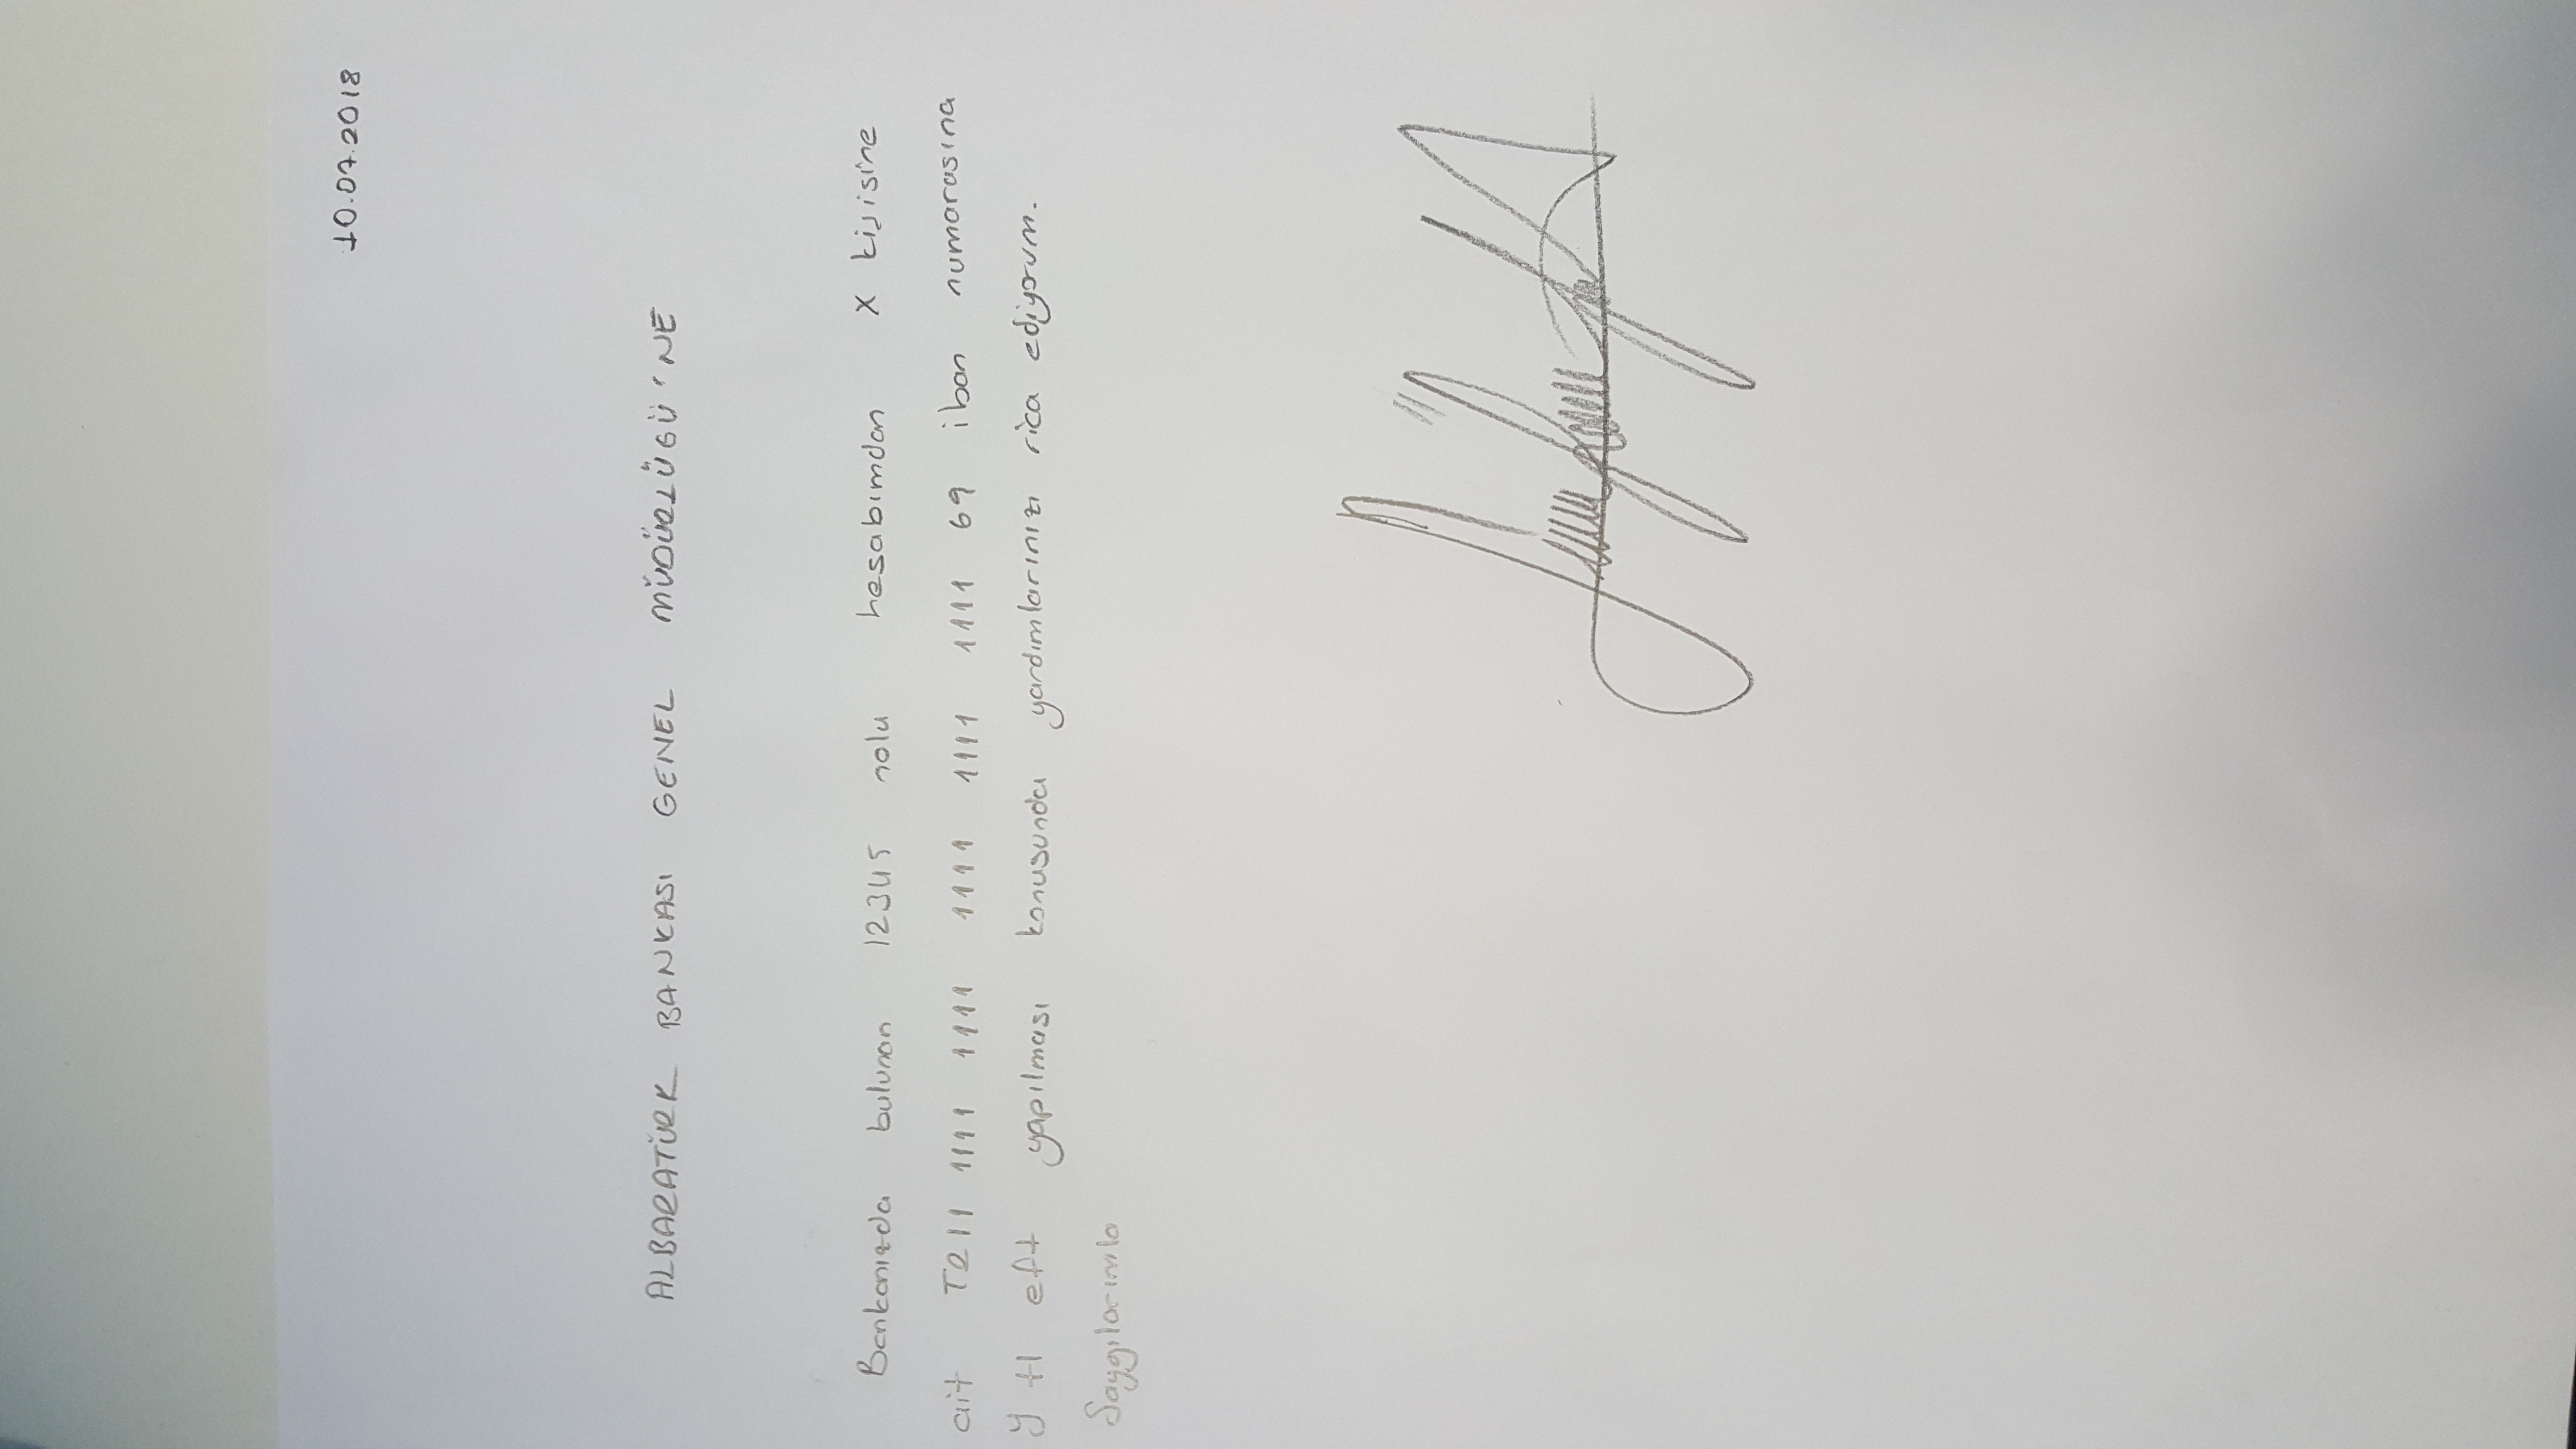 10.07.2018
ALBARATÜRK BANKASI GENEL MÜDÜRLÜGÜ'NE
Bankanızda bulunan 12345 nolu hesabımdan X kişisine
ait TR11 1111 1111 1111 1111 1111 69 iban numarasına
y tl eft yapılması konusunda yardımlarınızı rica ediyorum.
Saygılarımla